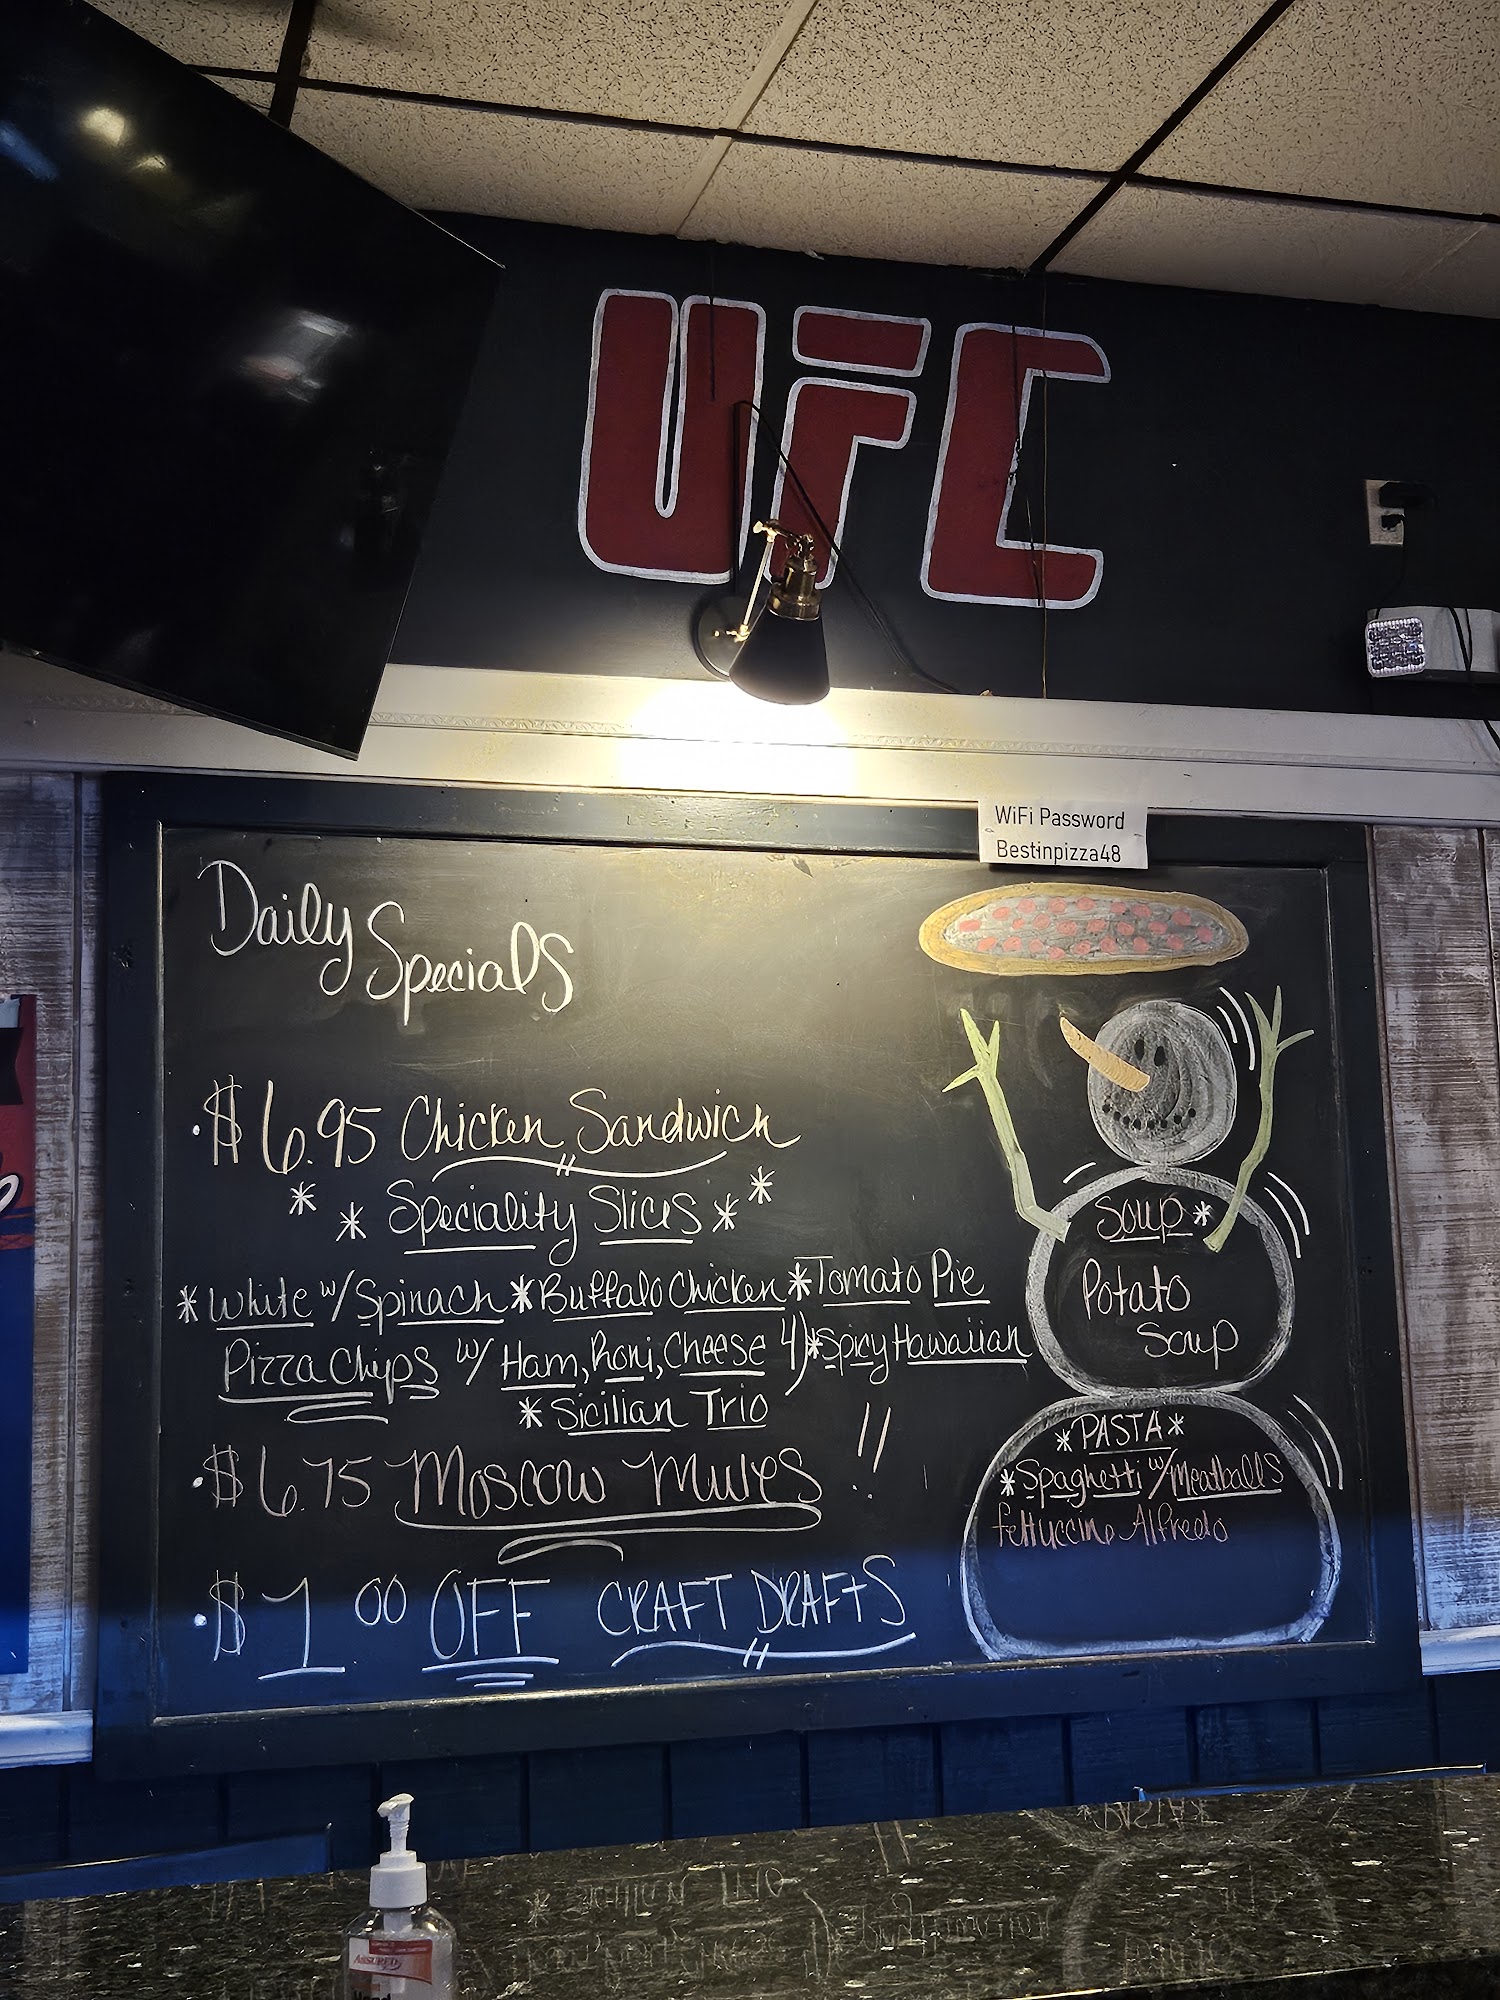 UFC
WiFi Password
Bestinpizza48
Daily Specials
• $6.95 Chicken Sandwich
* * Speciality Slices * *
* White w/ Spinach * Buffalo Chicken * Tomato Pie
Pizza Chips w/ Ham, Roni, Cheese 4) * Spicy Hawaiian
* Sicilian Trio
• $6.75 Moscow Mules !!
• $1.00 OFF CRAFT DRAFTS
Soup *
Potato
Soup
* PASTA *
* Spaghetti w/ Meatballs
fettuccine Alfredo
ASSURED
Hand